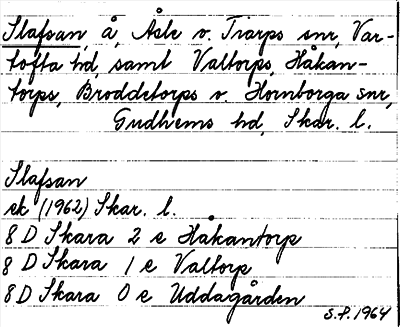 Slafsan, å, Åsle o. Tiarps snr, Var-
tofta hd, samt Valtorps, Håkan-
torps, Broddetorps o. Hornborga snr,
Gudhems hd, Skar. l.
Slafsan
ek (1962) Skar. l.
8 D Skara 2 e Håkantorp
8 D Skara 1 e Valtorp
8 D Skara 0 e Uddagården
S.P. 1964